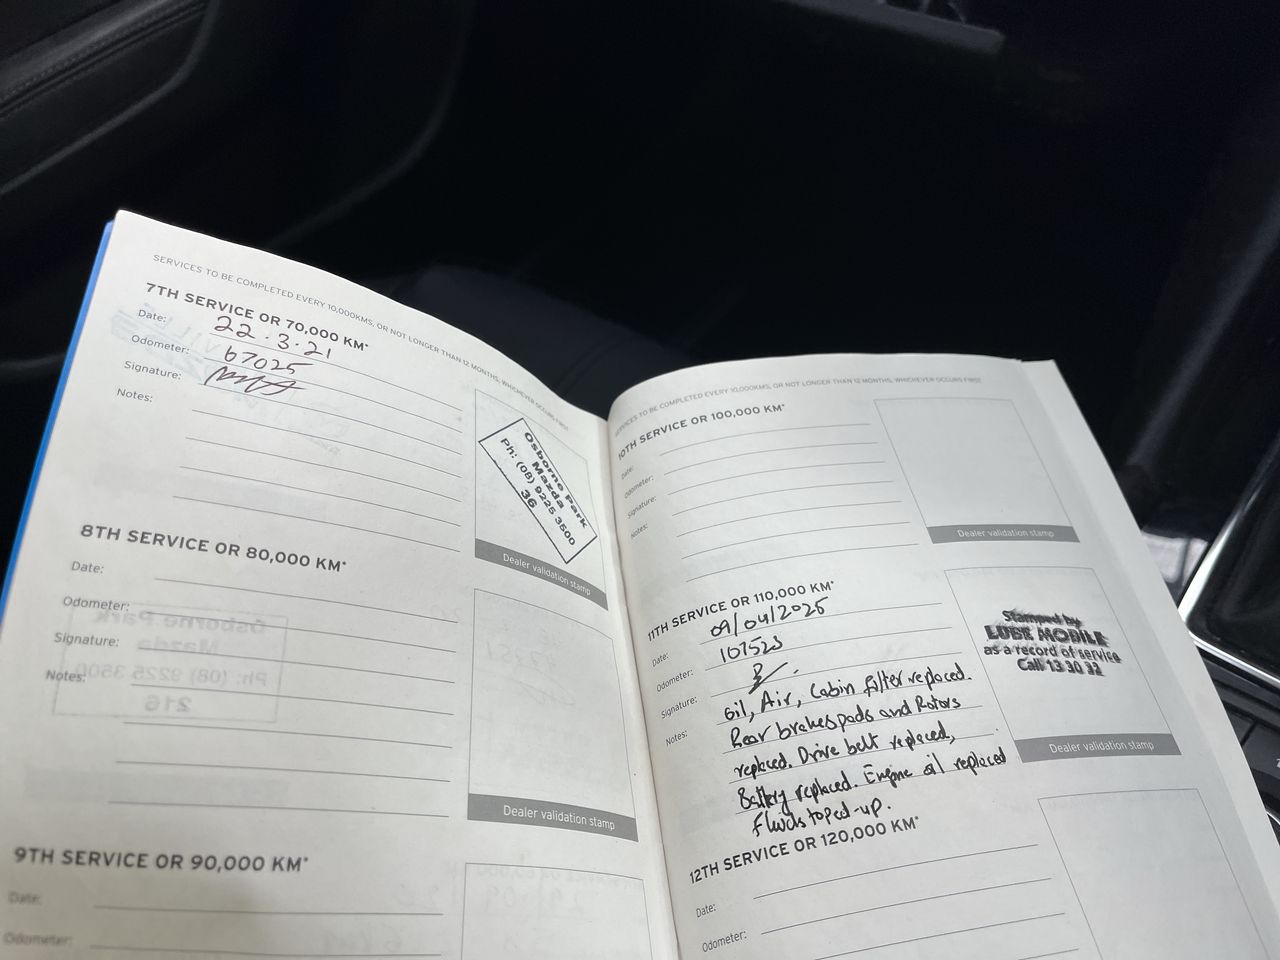 SERVICES TO BE COMPLETED EVERY 10,000KMS, OR NOT LONGER THAN 12 MONTHS, WHICHEVER OCCURS FIRST
7TH SERVICE OR 70,000 KM*
Date: 22.3.21
Odometer: 67025
Signature:
Notes:
Osborne Park
Mazda
Ph: (08) 9225 3500
36
Dealer validation stamp
8TH SERVICE OR 80,000 KM*
Date:
Odometer:
Signature:
Notes:
Dealer validation stamp
9TH SERVICE OR 90,000 KM*
Date:
Odometer:
SERVICES TO BE COMPLETED EVERY 10,000KMS, OR NOT LONGER THAN 12 MONTHS, WHICHEVER OCCURS FIRST
10TH SERVICE OR 100,000 KM*
Date:
Odometer:
Signature:
Notes:
Dealer validation stamp
11TH SERVICE OR 110,000 KM*
Date: 09/04/2025
Odometer:
Signature:
Notes: Oil, Air, Cabin filter replaced.
Rear brakes pads and Rotors
replaced. Drive belt replaced,
Battery replaced. Engine oil replaced
Fluids toped-up.
Stamped by
LUBE MOBILE
as a record of service
Call 13 30 32
Dealer validation stamp
12TH SERVICE OR 120,000 KM*
Date:
Odometer: